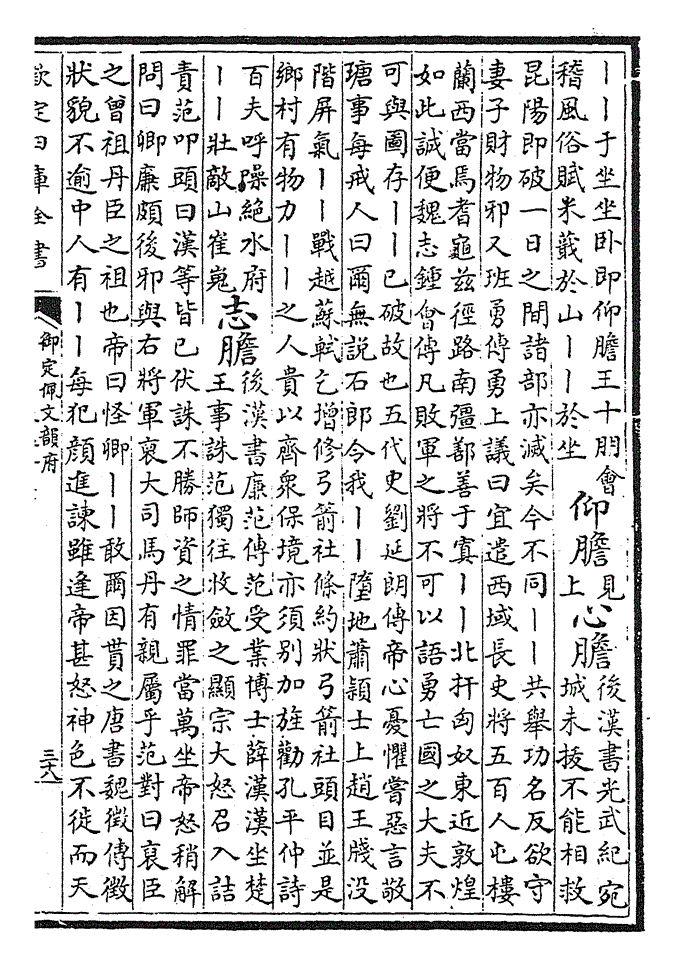 丨丨于坐坐卧即仰膽王十朋會
稽風俗賦米蕺於山丨丨於坐
仰膽
見
上
心膽
後漢書光武紀宛
城未拔不能相救
昆陽即破一日之間諸部亦滅矣今不同丨丨共舉功名反欲守
妻子財物邪又班勇傳勇上議曰宜遣西域長史將五百人屯樓
蘭西當焉耆龜兹徑路南彊鄯善于寘丨丨北扞匈奴東近敦煌
如此誠便魏志鍾會傳凡敗軍之將不可以語勇亡國之大夫不
可與圖存丨丨已破故也五代史劉延朗傳帝心憂懼嘗惡言敬
瑭事每戒人曰爾無説石郎令我丨丨墮地蕭頴士上趙王牋没
階屏氣丨丨戰越蘇軾乞增修弓箭社條約狀弓箭社頭目並是
鄉村有物力丨丨之人貴以齊衆保境亦須别加旌勸孔平仲詩
百夫呼躁絶水府
丨丨壯敵山崔嵬
志膽
後漢書廉范傳范受業博士薛漢漢坐楚
王事誅范獨往收斂之顯宗大怒召入詰
責范叩頭曰漢等皆已伏誅不勝師資之情罪當萬坐帝怒稍解
問曰卿廉頗後邪與右將軍裒大司馬丹有親屬乎范對曰裒臣
之曾祖丹臣之祖也帝曰怪卿丨丨敢爾因貰之唐書魏徵傳徵
狀貌不逾中人有丨丨每犯顔進諫雖逢帝甚怒神色不徙而天
欽定四庫全書
御定佩文韻府
三十八